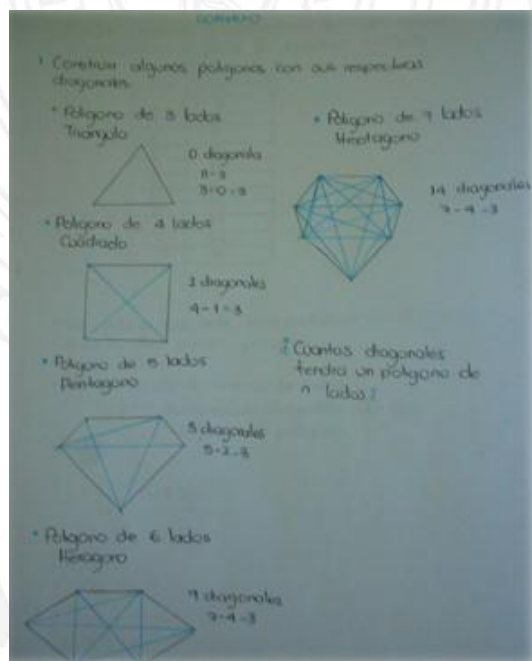 1 Construir algunos poligonos con sus respectivas
diagonales.
• Poligono de 3 lados
Triangulo
0 diagonales
3-0=3
• Poligono de 4 lados
Cuadrado
2 diagonales
4-1=3
• Poligono de 5 lados
Pentagono
5 diagonales
5-2=3
• Poligono de 6 lados
Hexagono
9 diagonales
7-4=3
• Poligono de 7 lados
Heptagono
14 diagonales
7-4=3
¿Cuantas diagonales
tendra un poligono de
n lados?